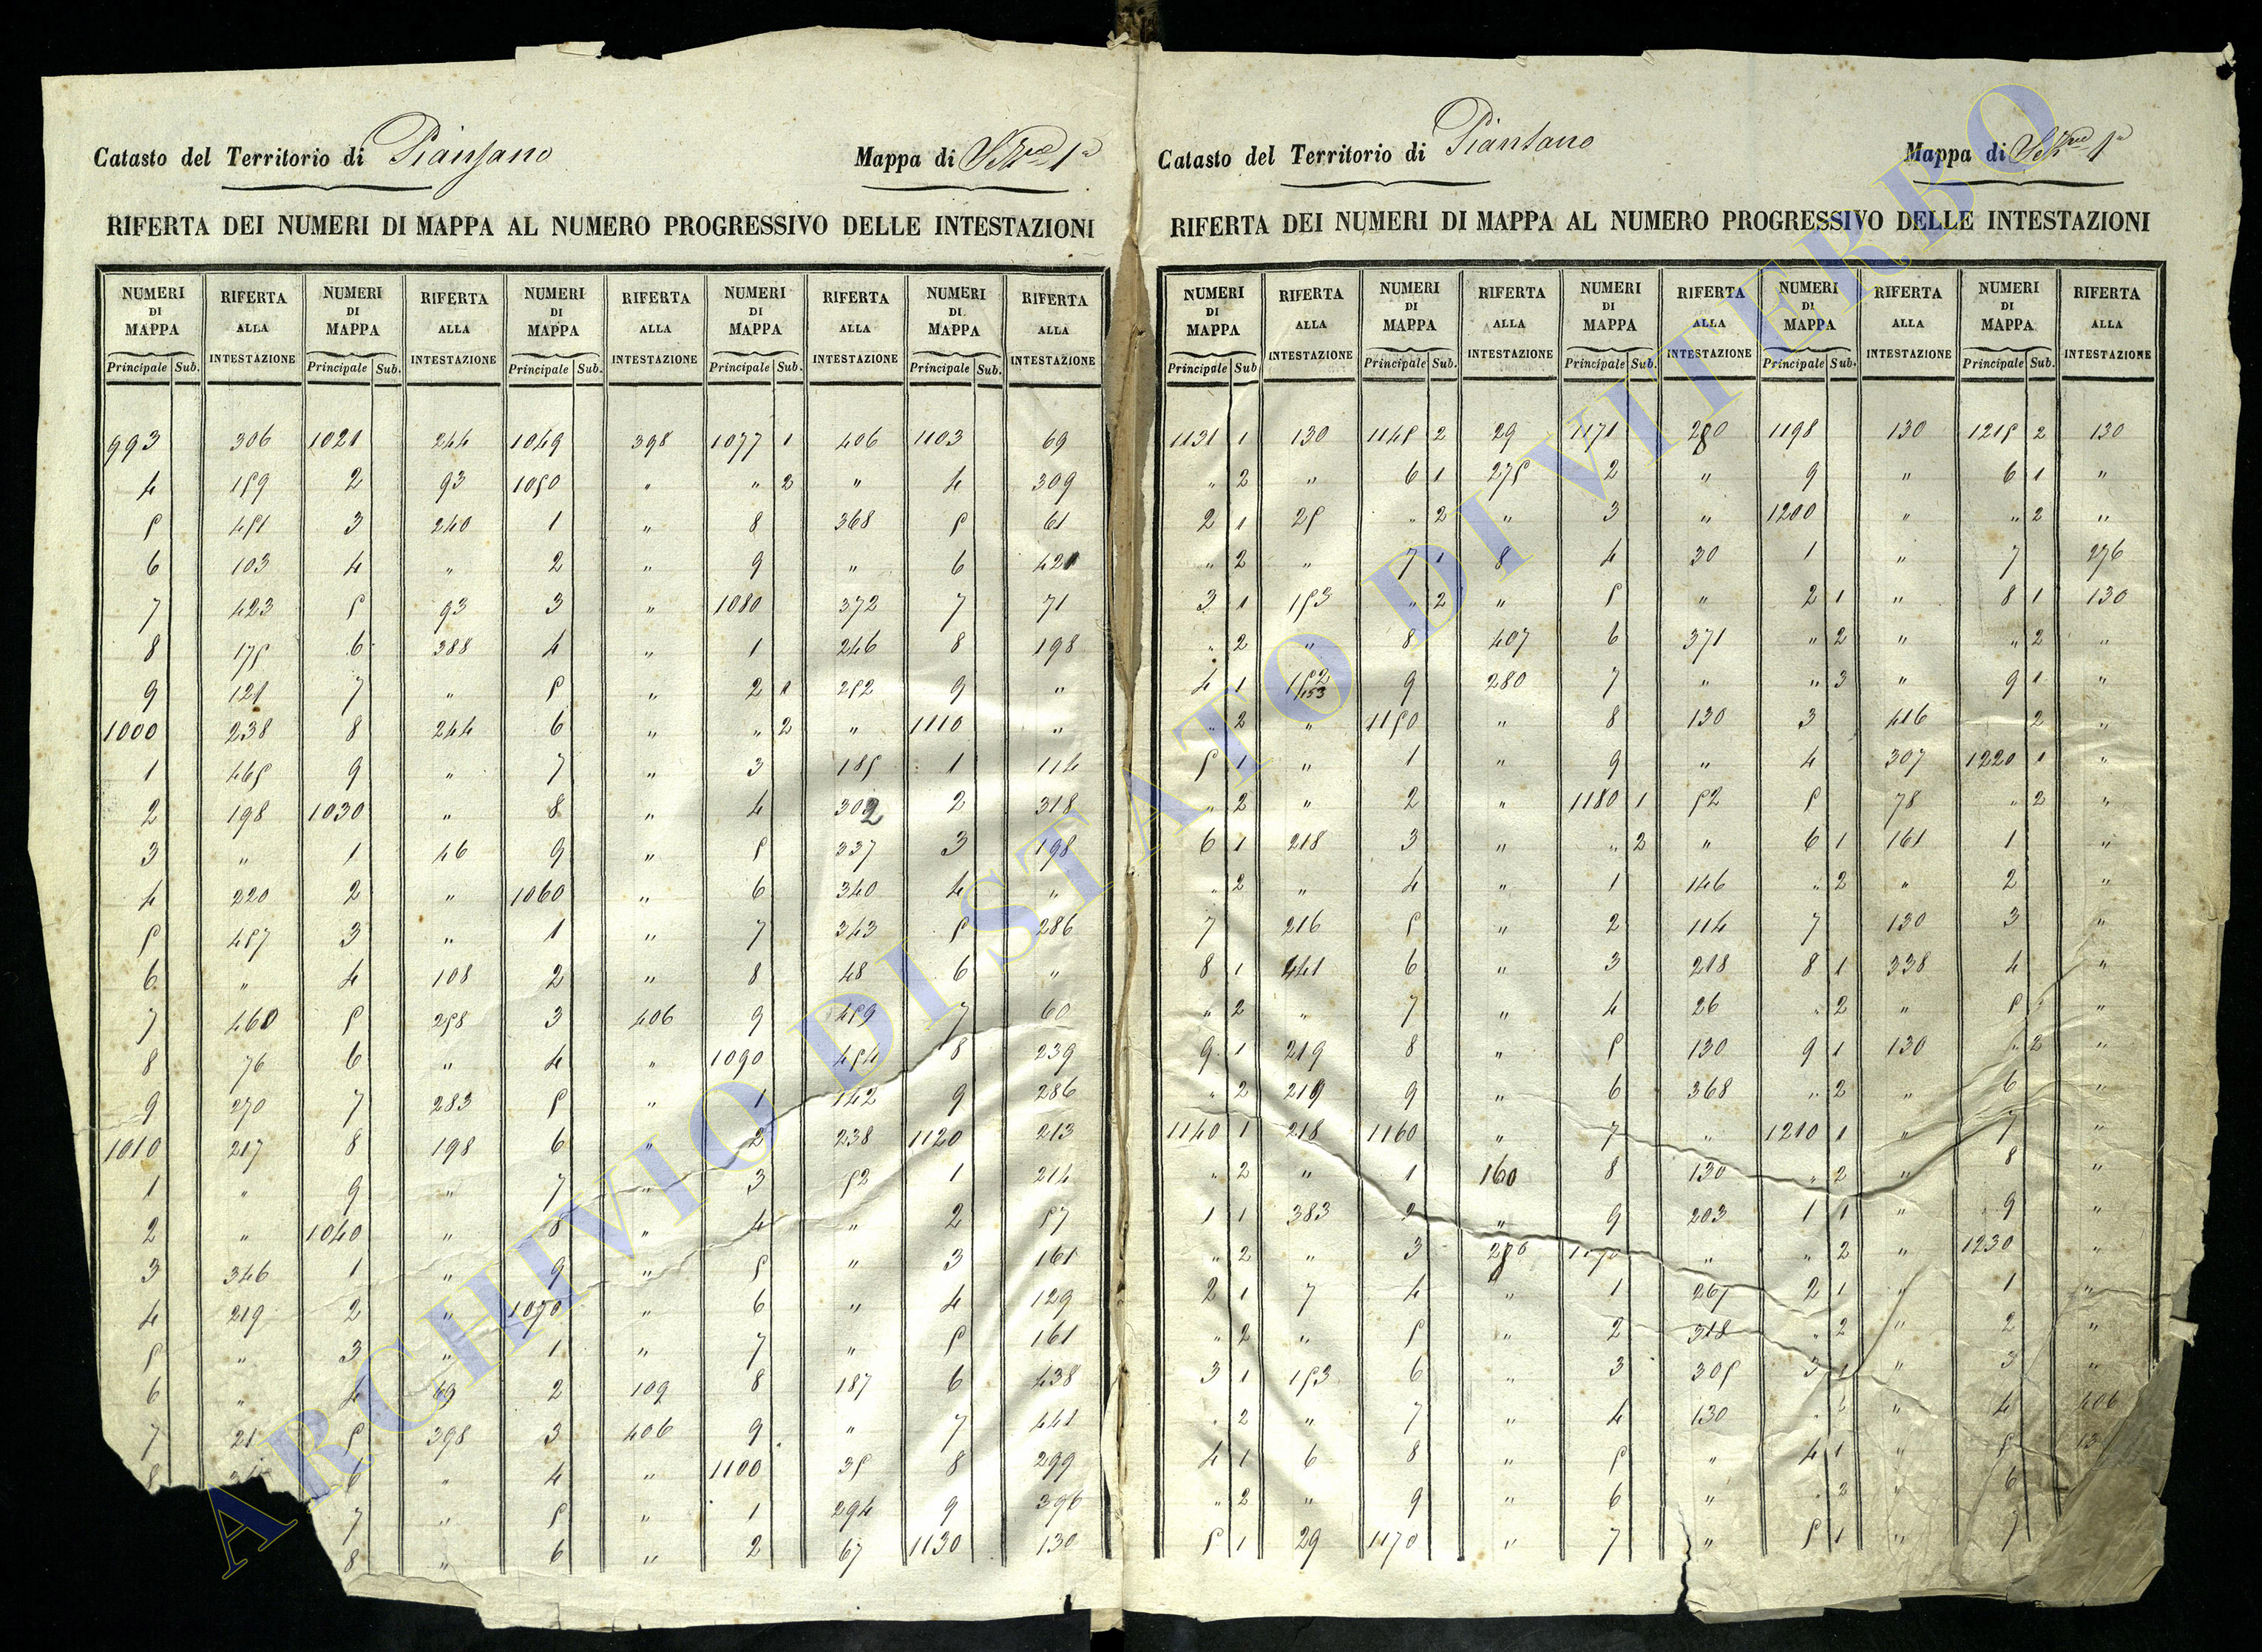 Catasto del Territorio di Piansano Mappa di Sez.ne 1a
RIFERTA DEI NUMERI DI MAPPA AL NUMERO PROGRESSIVO DELLE INTESTAZIONI
NUMERI DI MAPPA RIFERTA ALLA INTESTAZIONE NUMERI DI MAPPA RIFERTA ALLA INTESTAZIONE NUMERI DI MAPPA RIFERTA ALLA INTESTAZIONE NUMERI DI MAPPA RIFERTA ALLA INTESTAZIONE NUMERI DI MAPPA RIFERTA ALLA INTESTAZIONE
Principale Sub. Principale Sub. Principale Sub. Principale Sub. Principale Sub.
993 306 1021 244 1049 398 1077 1 406 1103 69
4 159 2 93 1050 " " 2 " 4 309
5 451 3 240 1 " 8 368 5 61
6 103 4 " 2 " 9 " 6 421
7 423 5 93 3 " 1080 372 7 71
8 175 6 388 4 " 1 246 8 198
9 121 7 " 5 " 2 1 252 9 "
1000 238 8 244 6 " " 2 " 1110 "
1 465 9 " 7 " 3 185 1 114
2 198 1030 " 8 " 4 302 2 318
3 " 1 46 9 " 5 337 3 198
4 220 2 " 1060 " 6 340 4 "
5 457 3 " 1 " 7 343 5 286
6 " 4 108 2 " 8 48 6 "
7 460 5 258 3 406 9 459 7 60
8 76 6 " 4 " 1090 454 8 239
9 270 7 283 5 " 1 142 9 286
1010 217 8 198 6 " 2 238 1120 213
1 " 9 " 7 " 3 52 1 214
2 " 1040 " 8 " 4 " 2 57
3 346 1 " 9 " 5 " 3 161
4 219 2 " 1070 " 6 " 4 129
5 " 3 " 1 " 7 " 5 161
6 " 4 69 2 109 8 187 6 438
7 21 5 398 3 406 9 " 7 441
8 6 " 4 " 1100 35 8 299
7 " 5 " 1 294 9 396
8 " 6 " 2 67 1130 130
Catasto del Territorio di Piansano Mappa di Sez.ne 1a
RIFERTA DEI NUMERI DI MAPPA AL NUMERO PROGRESSIVO DELLE INTESTAZIONI
NUMERI DI MAPPA RIFERTA ALLA INTESTAZIONE NUMERI DI MAPPA RIFERTA ALLA INTESTAZIONE NUMERI DI MAPPA RIFERTA ALLA INTESTAZIONE NUMERI DI MAPPA RIFERTA ALLA INTESTAZIONE NUMERI DI MAPPA RIFERTA ALLA INTESTAZIONE
Principale Sub Principale Sub. Principale Sub. Principale Sub. Principale Sub.
1131 1 130 1145 2 29 1171 280 1198 130 1215 2 130
" 2 " 6 1 275 2 " 9 " 6 1 "
2 1 25 " 2 " 3 " 1200 " " 2 "
" 2 " 7 1 8 4 30 1 " 7 276
3 1 153 " 2 " 5 " 2 1 " 8 1 130
" 2 " 8 407 6 371 " 2 " " 2 "
4 1 152/153 9 280 7 " " 3 " 9 1 "
" 2 " 1150 " 8 130 3 416 2 "
5 1 " 1 " 9 " 4 307 1220 1 "
" 2 " 2 " 1180 1 52 5 78 " 2 "
6 1 218 3 " " 2 " 6 1 161 1 "
" 2 " 4 " 1 146 " 2 " 2 "
7 216 5 " 2 114 7 130 3 "
8 1 441 6 " 3 218 8 1 338 4 "
" 2 " 7 " 4 26 " 2 " 5 1 "
9 1 219 8 " 5 130 9 1 130 " 2 "
" 2 219 9 " 6 368 " 2 " 6 "
1140 1 218 1160 " 7 " 1210 1 " 7 "
" 2 " 1 160 8 130 " 2 " 8 "
1 1 383 2 " 9 203 1 1 " 9 "
" 2 " 3 1190 " " 2 " 1230 "
2 1 7 4 " 1 267 2 1 " 1 "
" 2 " 5 " 2 318 " 2 " 2 "
3 1 153 6 " 3 305 3 1 " 3 "
" 2 " 7 " 4 130 " 2 " 4 406
4 1 6 8 " 5 " 4 1 " 5
" 2 " 9 " 6 " " 2 " 6
5 1 29 1170 " 7 " 5 1 " 7
ARCHIVIO DI STATO DI VITERBO